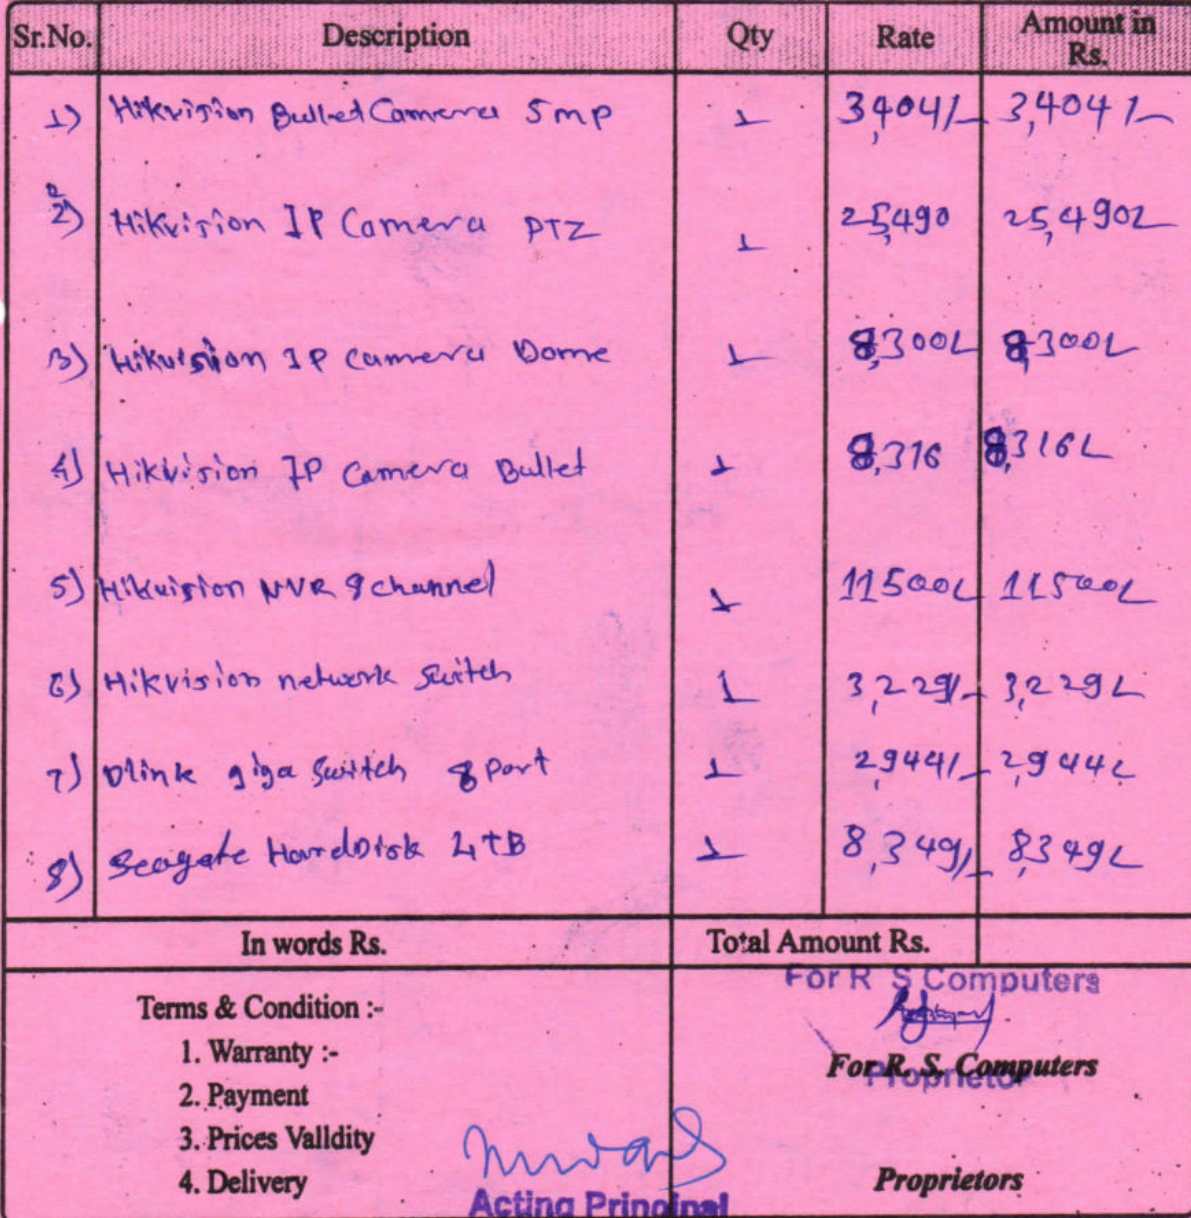 Sr.No. Description Qty Rate Amount in Rs.
1) Hikvision Bullet Camera 5mp 1 3,404/- 3,404/-
2) Hikvision IP Camera PTZ 1 25,490 25,490/-
3) Hikvision IP camera Dome 1 8,300/- 8,300/-
4) Hikvision IP Camera Bullet 1 8,316 8,316/-
5) Hikvision NVR 8 channel 1 11500/- 11500/-
6) Hikvision network switch 1 3,229/- 3,229/-
7) Dlink giga switch 8 port 1 2,944/- 2,944/-
8) Seagate HardDisk 4TB 1 8,349/- 8349/-
In words Rs. Total Amount Rs.
For R S Computers
Terms & Condition :-
1. Warranty :-
For R. S. Computers
Proprietor
2. Payment
3. Prices Valldity
4. Delivery
Proprietors
Acting Principal